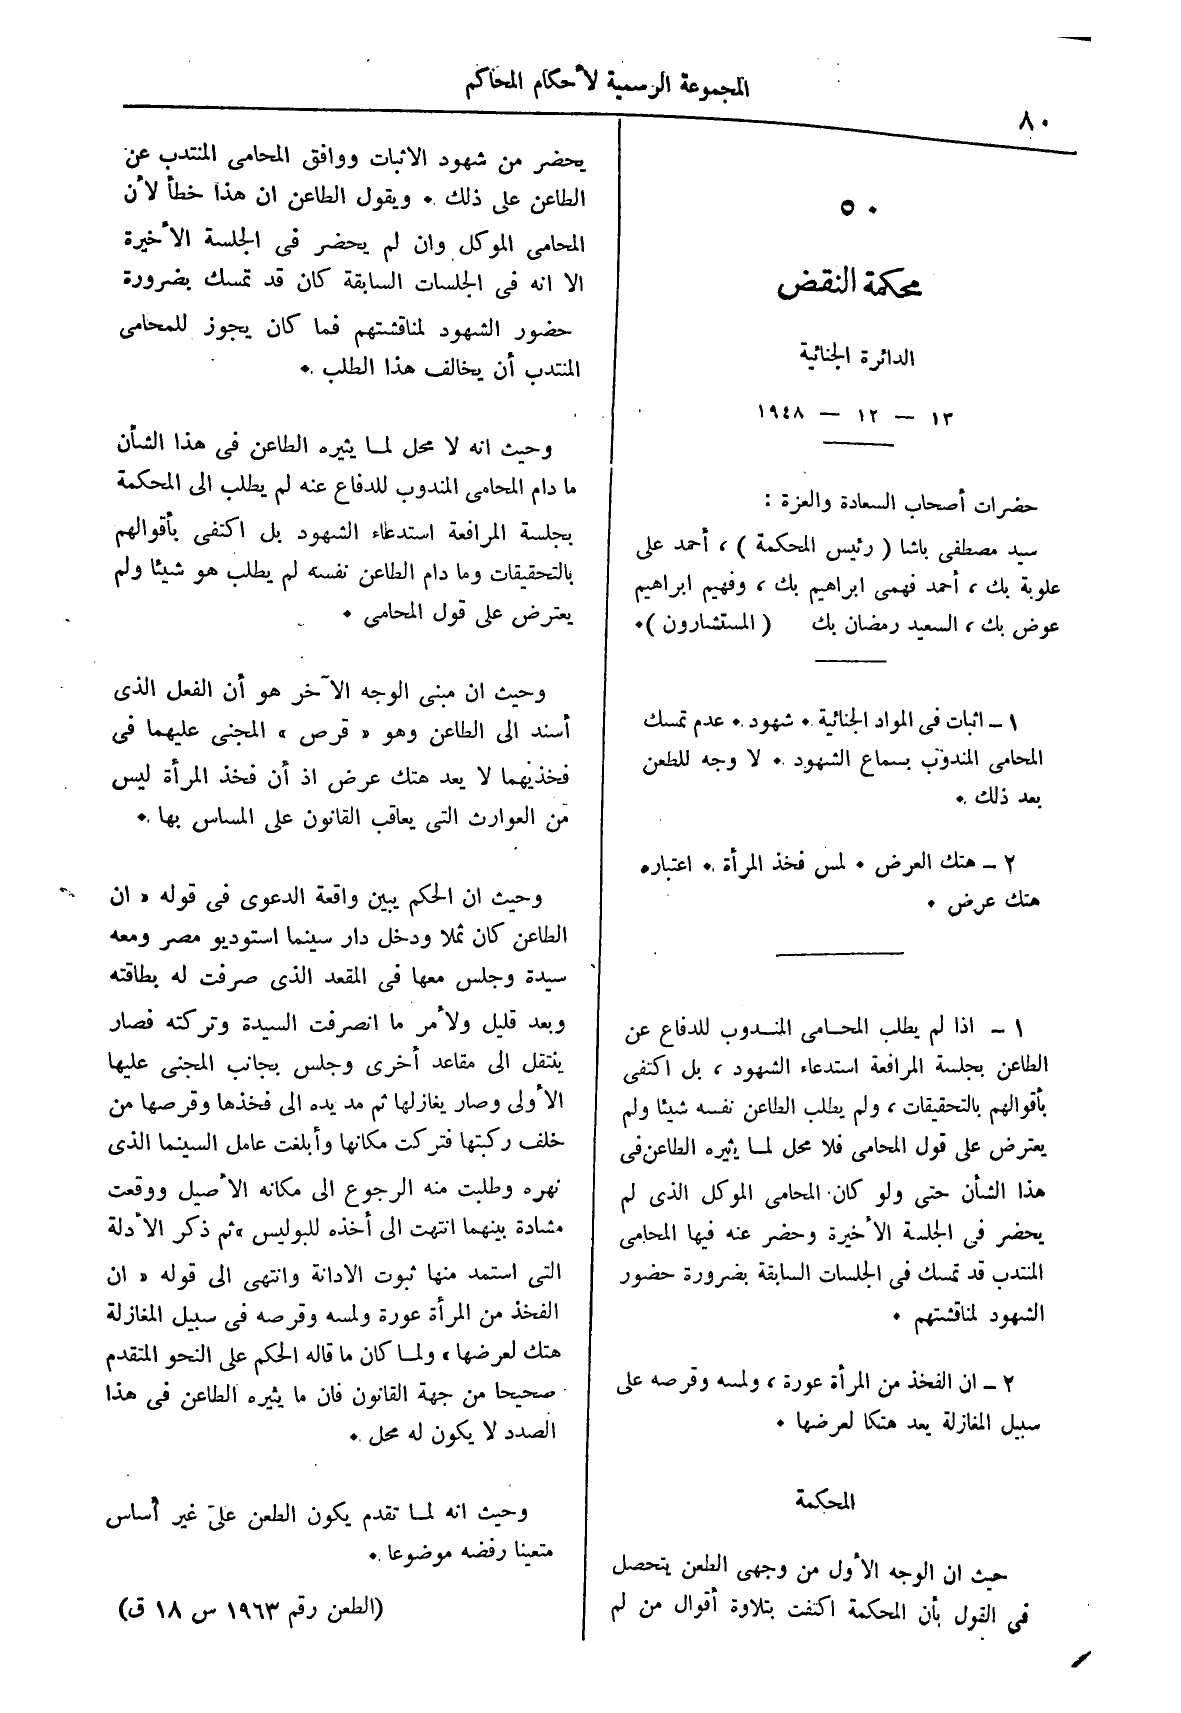 المجموعة الرسمية لأحكام المحاكم
٨٠
٥٠
محكمة النقض
الدائرة الجنائية
١٣ — ١٢ — ١٩٤٨
حضرات أصحاب السعادة والعزة :
سيد مصطفى باشا ( رئيس المحكمة ) ، أحمد على
علوبة بك ، أحمد فهمى ابراهيم بك ، وفهيم ابراهيم
عوض بك ، السعيد رمضان بك ( المستشارون ) .
١ – اثبات فى المواد الجنائية . شهود . عدم تمسك
المحامى المندوب بسماع الشهود . لا وجه للطعن
بعد ذلك .
٢ – هتك العرض . لمس فخذ المرأة . اعتباره
هتك عرض .
١ – اذا لم يطلب المحامى المندوب للدفاع عن
الطاعن بجلسة المرافعة استدعاء الشهود ، بل اكتفى
بأقوالهم بالتحقيقات ، ولم يطلب الطاعن نفسه شيئا ولم
يعترض على قول المحامى فلا محل لما يثيره الطاعن فى
هذا الشأن حتى ولو كان المحامى الموكل الذى لم
يحضر فى الجلسة الأخيرة وحضر عنه فيها المحامى
المنتدب قد تمسك فى الجلسات السابقة بضرورة حضور
الشهود لمناقشتهم .
٢ – ان الفخذ من المرأة عورة ، ولمسه وقرصه على
سبيل المغازلة يعد هتكا لعرضها .
المحكمة
حيث ان الوجه الأول من وجهى الطعن يتحصل
فى القول بأن المحكمة اكتفت بتلاوة أقوال من لم
يحضر من شهود الاثبات ووافق المحامى المنتدب عن
الطاعن على ذلك . ويقول الطاعن ان هذا خطأ لأن
المحامى الموكل وان لم يحضر فى الجلسة الأخيرة
الا انه فى الجلسات السابقة كان قد تمسك بضرورة
حضور الشهود لمناقشتهم فما كان يجوز للمحامى
المنتدب أن يخالف هذا الطلب .
وحيث انه لا محل لما يثيره الطاعن فى هذا الشأن
ما دام المحامى المندوب للدفاع عنه لم يطلب الى المحكمة
بجلسة المرافعة استدعاء الشهود بل اكتفى بأقوالهم
بالتحقيقات وما دام الطاعن نفسه لم يطلب هو شيئا ولم
يعترض على قول المحامى .
وحيث ان مبنى الوجه الآخر هو أن الفعل الذى
أسند الى الطاعن وهو « قرص » المجنى عليهما فى
فخذيهما لا يعد هتك عرض اذ أن فخذ المرأة ليس
من العوارث التى يعاقب القانون على المساس بها .
وحيث ان الحكم يبين واقعة الدعوى فى قوله « ان
الطاعن كان ثملا ودخل دار سينما استوديو مصر ومعه
سيدة وجلس معها فى المقعد الذى صرفت له بطاقته
وبعد قليل ولأمر ما انصرفت السيدة وتركته فصار
ينتقل الى مقاعد أخرى وجلس بجانب المجنى عليها
الأولى وصار يغازلها ثم مد يده الى فخذها وقرصها من
خلف ركبتها فتركت مكانها وأبلغت عامل السينما الذى
نهره وطلبت منه الرجوع الى مكانه الأصيل ووقعت
مشادة بينهما انتهت الى أخذه للبوليس » ثم ذكر الأدلة
التى استمد منها ثبوت الادانة وانتهى الى قوله « ان
الفخذ من المرأة عورة ولمسه وقرصه فى سبيل المغازلة
هتك لعرضها » ولما كان ما قاله الحكم على النحو المتقدم
صحيحا من جهة القانون فان ما يثيره الطاعن فى هذا
الصدد لا يكون له محل .
وحيث انه لما تقدم يكون الطعن على غير أساس
متعينا رفضه موضوعا .
(الطعن رقم ١٩٦٣ س ١٨ ق)